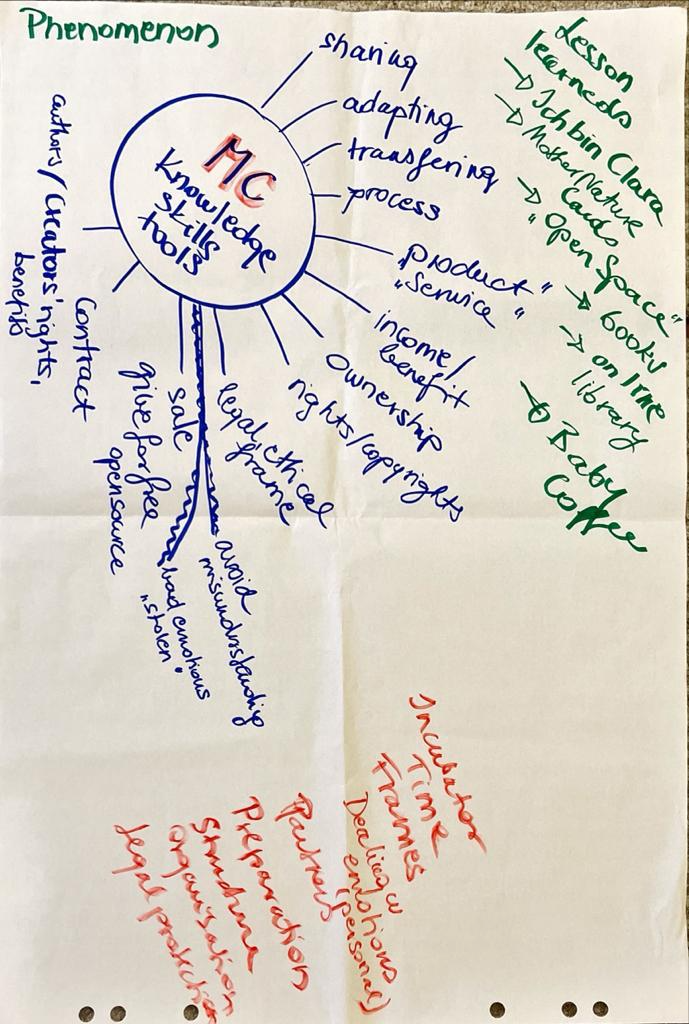 Phenomenon
MC
Knowledge
skills
tools
sharing
adapting
transfering
process
"product"
"service"
income/
benefit
ownership
rights/copyrights
legal, ethical
frame
avoid
misunderstanding
bad emotions
"stolen"
sale
give for free
opensource
Contract
authors/creators' rights,
benefits
Lesson
learneds
→ Ich bin Clara
→ Mother Nature
Cards
→ "Open Space"
→ books
→ online
library
→ Baby
Coffee
Incubator
Time
Frames
Dealing w
emotions
(personal)
Partners
Preparation
Structure
organisation
legal protection